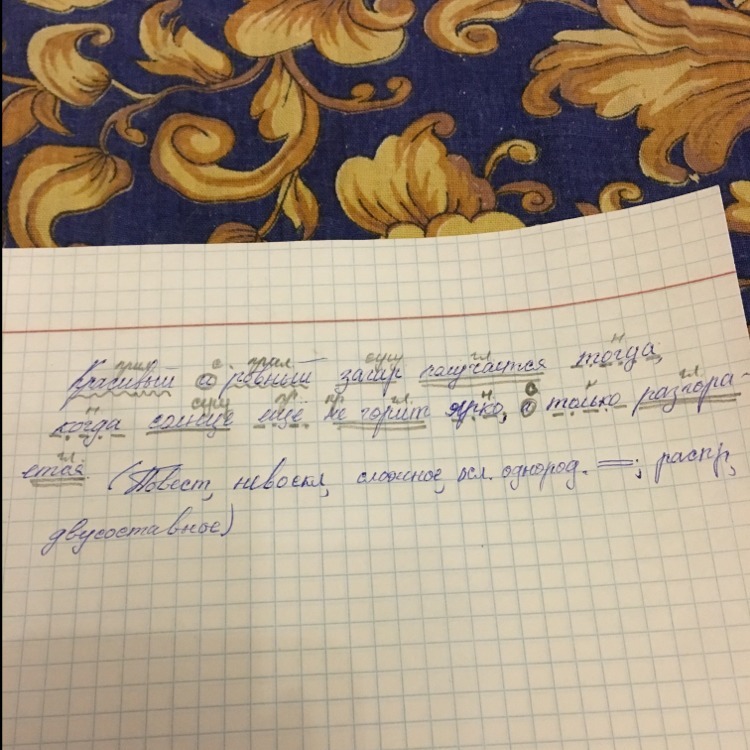 прил с. прил сущ гл. н
Красивый и ровный загар получается тогда,
н сущ пр. пр гл. н с н гл.
когда солнце еще не горит ярко, а только разгора-
гл.
ется. (Повест, невоскл, сложное, осл. однород. ═; распр,
двусоставное)